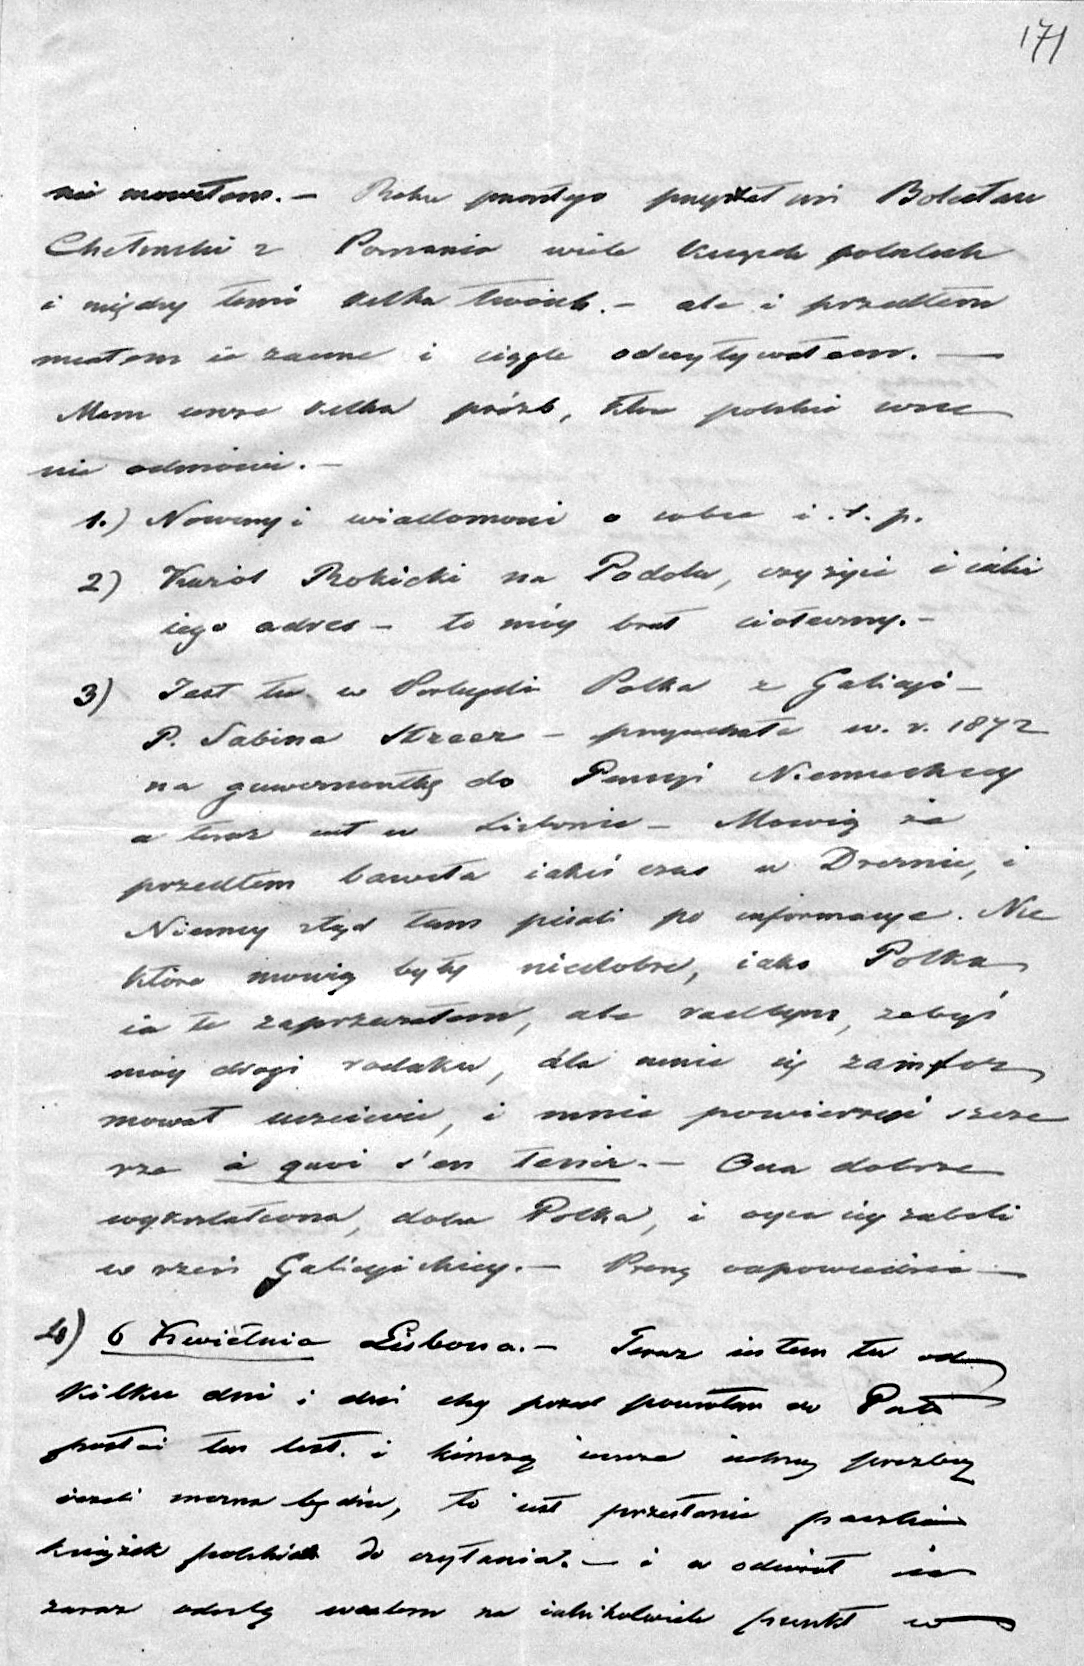 171
nie mowiłem. — Roku przeszłego przysłał mi Bolesław
Chełmski z Poznania wiele książek polskich
i między temi kilka twoich. — ale i przedtem
miałem ie zawsze i ciągle odczytywałem. —
Mam ieszcze kilka próźb, które polskie serce
nie odmówi. —
1.) Nowiny i wiadomości o sobie i. t. p.
2) Karól Rokicki na Podolu, czy żyie i iaki
iego adres — to móy brat cioteczny. —
3) Jest tu w Portugalii Polka z Galicyi —
P. Sabina — przyjechała w. r. 1872
na guwernantkę do Pensyi Niemieckiey
a teraz iest w Lisbonie — Mowią że
przedtem bawiła iakiś czas w Dreznie, i
Niemcy ztąd tam pisali po informacye. Nie
które mowią były niedobre, iako Polka
ia te zaprzeczałem, ale radbym, żebyś
móy drogi rodaku, dla mnie się zainfor
mował uczciwie, i mnie powierzył szcze
rze à quoi s'en tenir. — Ona dobrze
wykształcona, dobra Polka, i oyca iey zabili
w rzezi Galicyiskiey. — Proszę odpowiedzi —
4) 6 Kwietnia Lisbona. — Teraz iestem tu od
kilku dni i dziś chcę przed powrotem do Porto
posłać ten list. i kończę ieszcze iedną prozbą
ieżeli można będzie, to iest przesłanie paczki
książek polskich do czytania. — i a odwrót ie
zaraz odeślę na iakikolwiek punkt w